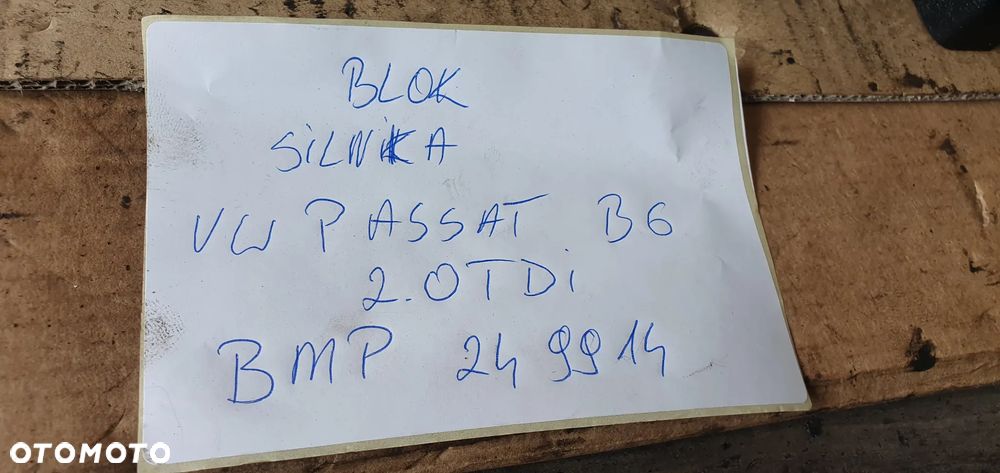 BLOK
SiLNiKA
VW PASSAT B6
2.0TDi
BMP 249914
OTOMOTO